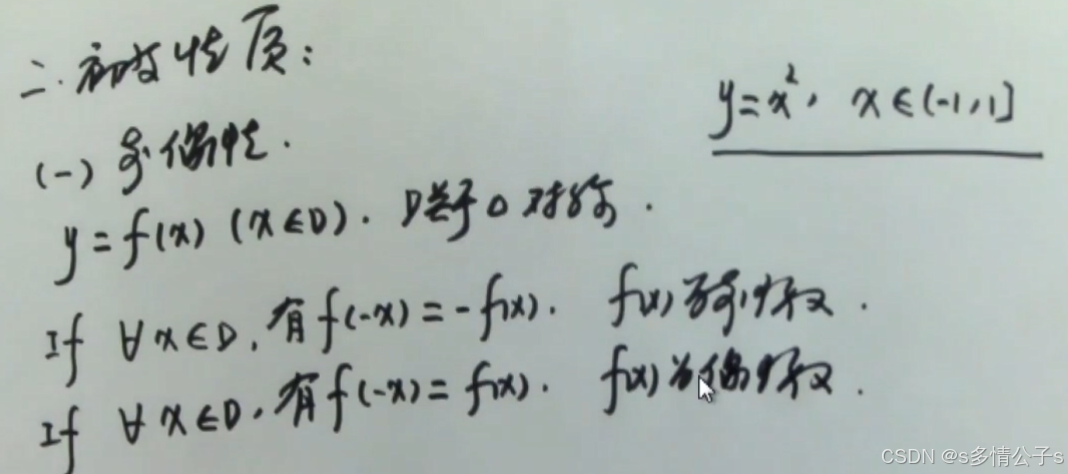 二. 初等性质:
(一) 奇偶性.
y=f(x) (x∈D). D关于0对称.
If ∀x∈D, 有f(-x)=-f(x). f(x)为奇函数.
If ∀x∈D, 有f(-x)=f(x). f(x)为偶函数.
y=x², x∈(-1,1]
CSDN @s多情公子s